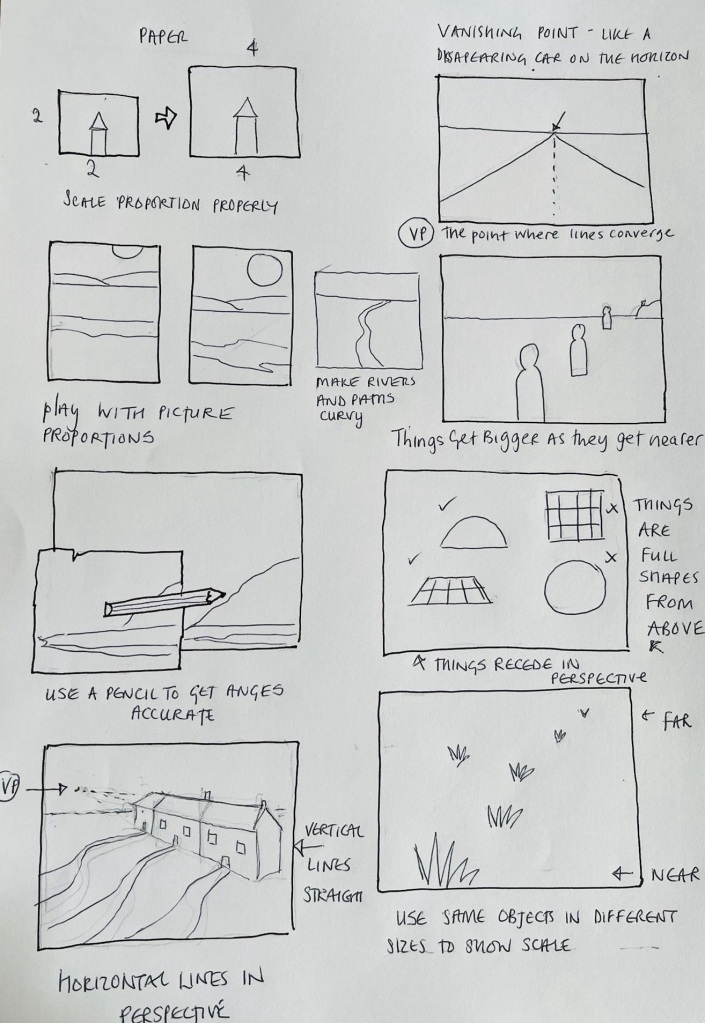 PAPER
4
2
2
4
SCALE PROPORTION PROPERLY
VANISHING POINT - LIKE A
DISAPEARING CAR ON THE HORIZON
VP The point where lines converge
PLAY WITH PICTURE
PROPORTIONS
MAKE RIVERS
AND PATHS
CURVY
Things Get Bigger As they get nearer
USE A PENCIL TO GET ANGES
ACCURATE
THINGS
ARE
FULL
SHAPES
FROM
ABOVE
THINGS RECEDE IN
PERSPECTIVE
VP
VERTICAL
LINES
STRAIGHT
HORIZONTAL LINES IN
PERSPECTIVE
FAR
NEAR
USE SAME OBJECTS IN DIFFERENT
SIZES TO SHOW SCALE